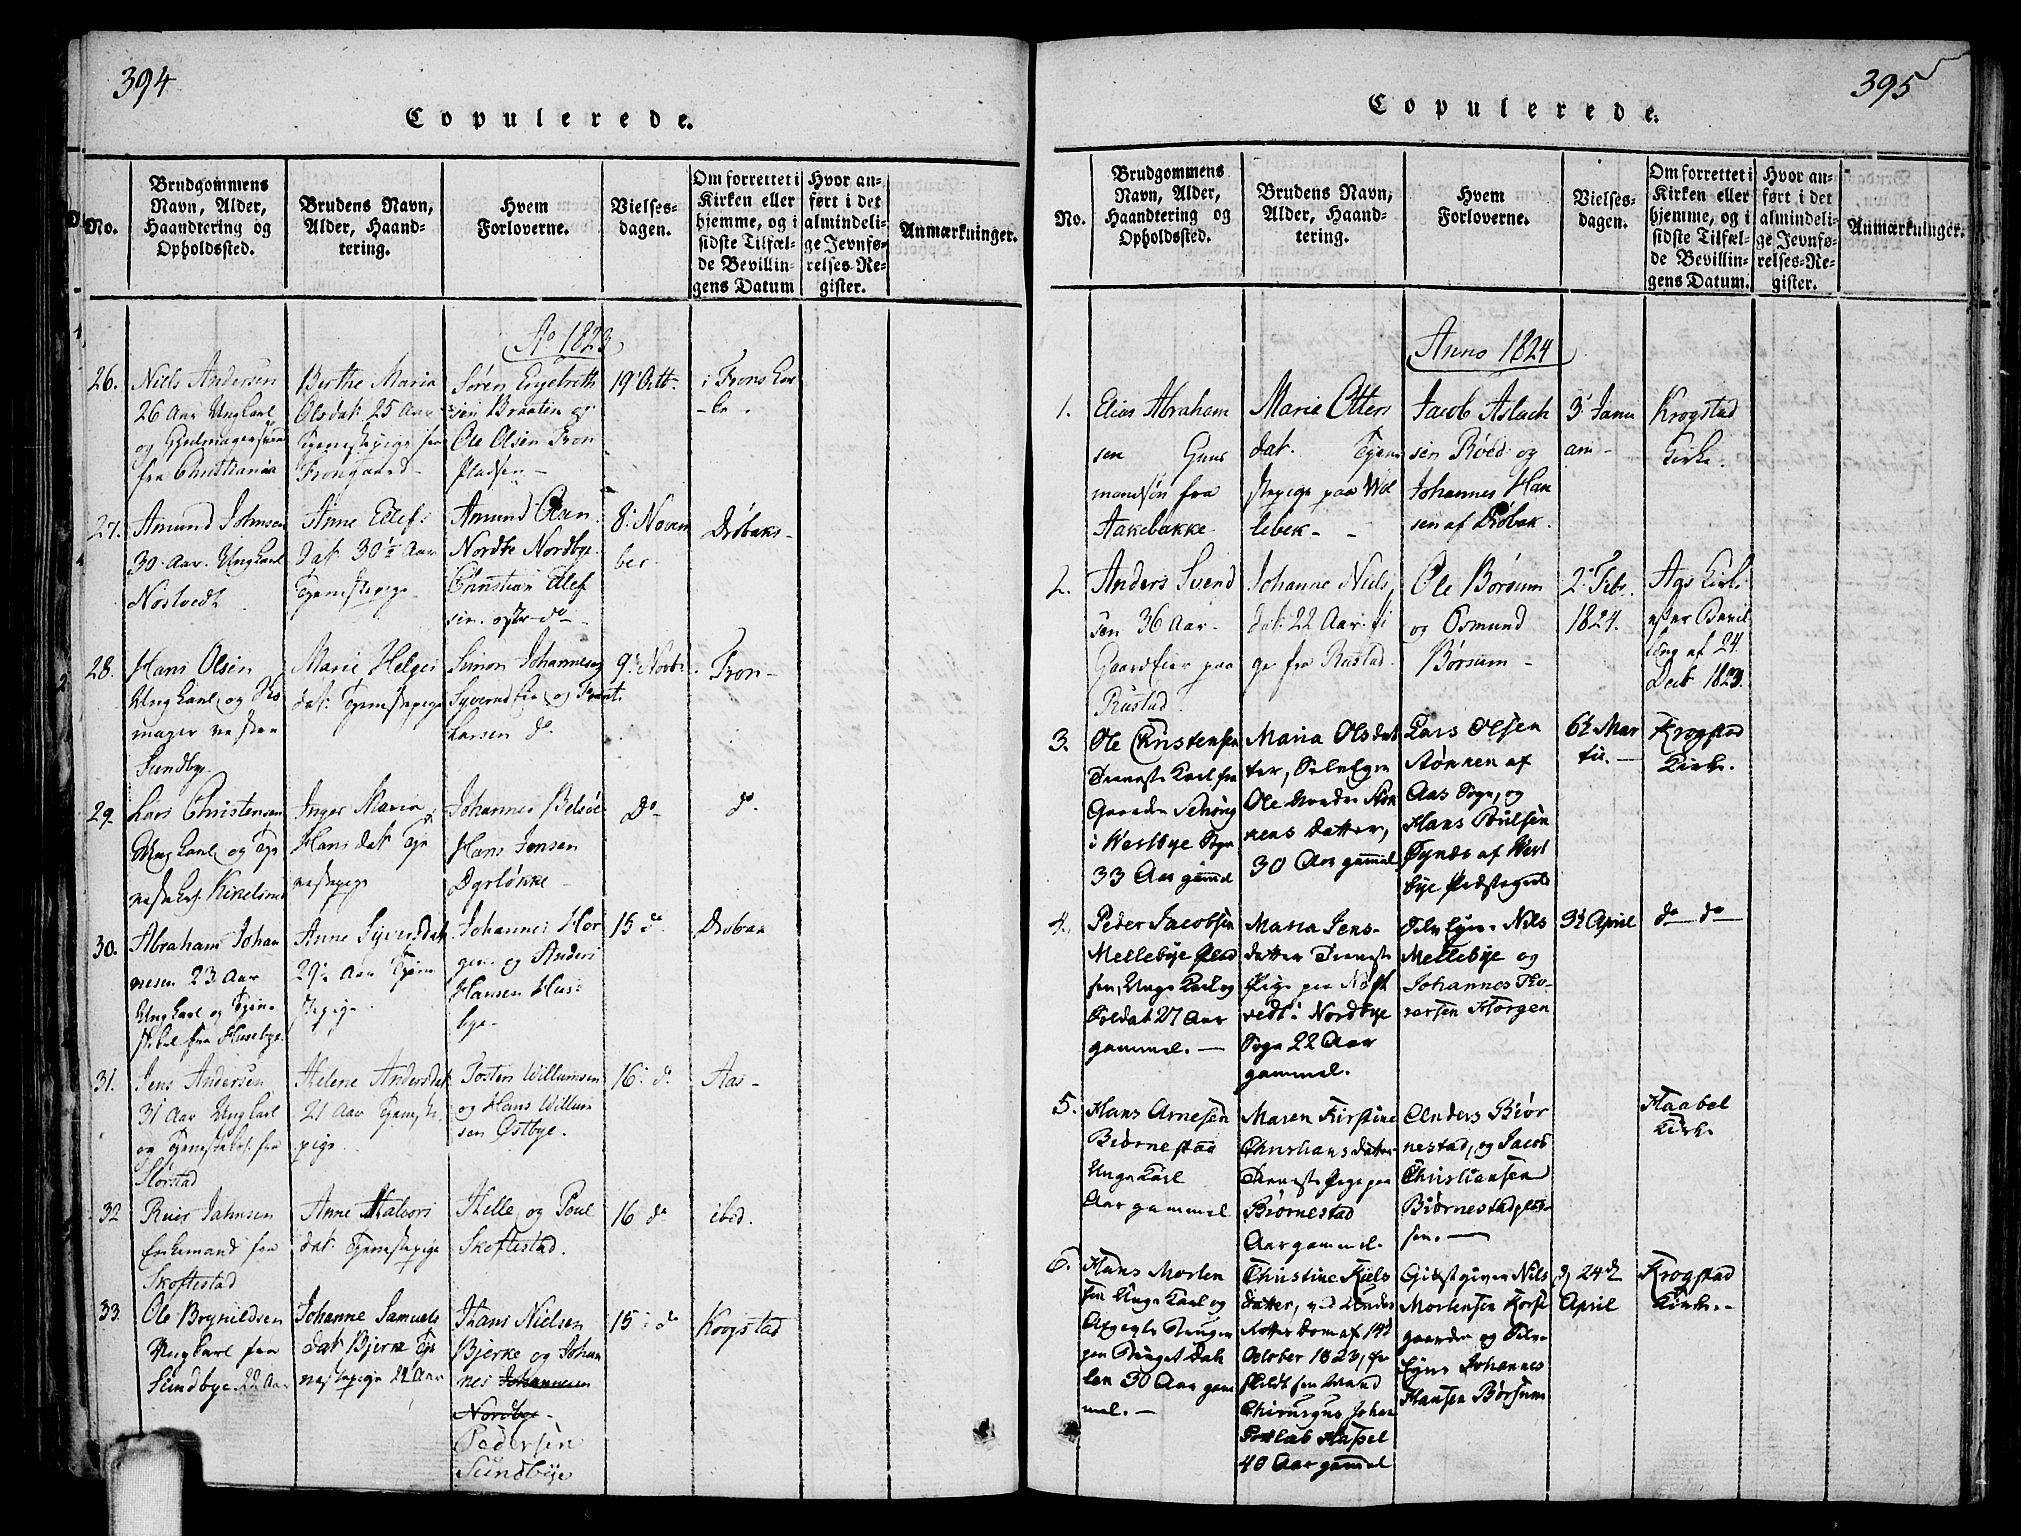 394
Copulerede.
No.
Brudgommens
Navn, Alder,
Haandtering og
Opholdssted.
Brudens Navn,
Alder, Haand-
tering.
Hvem
Forloverne.
Vielses-
dagen.
Om forrettet i
Kirken eller
hjemme, og i
sidste Tilfæl-
de Bevillin-
gens Datum
Hvor an-
ført i det
almindeli-
ge Jevnfø-
relses-Re-
gister.
Anmærkninger.
Ao 1823
26.
Niels Andersen
26 Aar Ungkarl
og
fra Christiania
Berthe Maria
Olsdat: 25 Aar
Tjenestepige fra
Frongaard
Søren Engebreth
sen Braaten og
Ole Olsen Fron
Pladsen
19' Octb:
i Frons Kir
ke.
27.
Amund Johnsen
30 Aar. Ungkarl
Nøstvedt
Anne Elefs
dat 30½ Aar
Tjenestepige
Amund Olsen
Nordbe Nordbye
Christian Elef
sen
8' Novem
ber
Drøbaks
28.
Hans Olsen
Ungkarl og Sko
mager
Sundbye
Marie Helges
dat: Tjenestepige
Simon Johannesen
og
Larsen do
9' Novbr
Fron
29.
Lars Christensen
Ungkarl og Tje
nestek:
Inger Maria
Hansdat Tje
nestepige
Johannes
Hans Jensen
Dyrløkke
Do
do.
30.
Abraham Johan
nesen 23 Aar
Ungkarl og Tjene
stek fra Husebye
Anne Syversdat
29½ Aar Tjene
stepige
Johannes Hor
gen og Anders
Hansen Huse
bye
15 do
Drøbak
31.
Jens Andersen
31 Aar Ungkarl
og Tjenestek. fra
Storstad
Helene Andersdat
21 Aar Tjeneste
pige
Tosten Willumsen
og Hans Willum
sen Østbye.
16' do
Aas
32
Reier Jahnsen
Enkemand fra
Skoftestad
Anne Halvors
dat: Tjenestepige
Helle og Poul
Skoftestad.
16 do
ibid.
33.
Ole Brynildsen
Ungkarl fra
Sundbye 22 Aar
Johanne Samuels
dat Bjerke Tje
nestepige 24 Aar
Hans Nielsen
Bjerke og Johan
nes Johannesen
Nordbye
Pedersen
Sundbye
15' do
Krogstad
395
Copulerede.
No.
Brudgommens
Navn, Alder,
Haandtering og
Opholdssted.
Brudens Navn,
Alder, Haand-
tering.
Hvem
Forloverne.
Vielses-
dagen.
Om forrettet i
Kirken eller
hjemme, og i
sidste Tilfæl-
de Bevillin-
gens Datum.
Hvor an-
ført i det
almindeli-
ge Jevnfø-
relses-Re-
gister.
Anmærkninger.
Anno 1824
1.
Elias Abraham
sen Gaar
mandsøn fra
Aakebakke
Marie Otters
dat. Tjene
stepige paa Wol
lebek
Jacob Aslach
sen Røed og
Johannes Han
sen af Drøbak.
3' Janu
ari
Krogstad
Kirke.
2.
Anders Svend
sen 36 Aar
Gaardeier paa
Rustad
Johanne Niels
dat: 22 Aar Pi
ge fra Rustad
Ole Børsum
og Osmund
Børsum
2' Febr.
1824.
Aas Kirk:
efter Bevil
ling af 24
Decb 1823.
3.
Ole Christensen
Tieneste Karl fra
Gaarden
i Westbye Sogn
33 Aar gammel
Maria Olsdat
ter, Selv Eger
Ole
nens Datter,
30 Aar gammel
Lars Olsen
Rønnen af
Aas Sogn, og
Hans Poulsen
af West
bye Præstegield
6te Mar
tii.
Krogstad
Kirke.
4.
Peder Jacobsen
Mellebye Plad
sen, Unge Karl og
Soldat 27 Aar
gammel.
Maria Jens-
datter Tieneste
Pige paa Nøst
vedt i Nordbye
Sogn 22 Aar
gammel.
Selv Eger Nils
Mellebye og
Johannes Tho-
rersen Horgen
3de April
do do
5.
Hans Arnesen
Biørnestad
Unge Karl
Aar gammel
Maren Kirstine
Christiansdatter
Tieneste Pige paa
Biørnestad
Aar gammel.
Anders Biør
nestad, og Jacob
Christiansen
Biørnestadplad-
sen.
Haabel
Kirke
6.
Hans Morten
sen Unge Karl og
len 30 Aar gam
mel.
Christine Niels
datter, ved Under
Retts Dom af 14de
October 1823,
skildt fra Mand
Chirurgus Johan
Gotlieb Hassel
40 Aar gammel
Giæstgiver Nils
Mortensen Korse
gaarden og Selv-
Eger Johannes
Hansen Børsum
d 24de
April
Krogstad
Kirke.